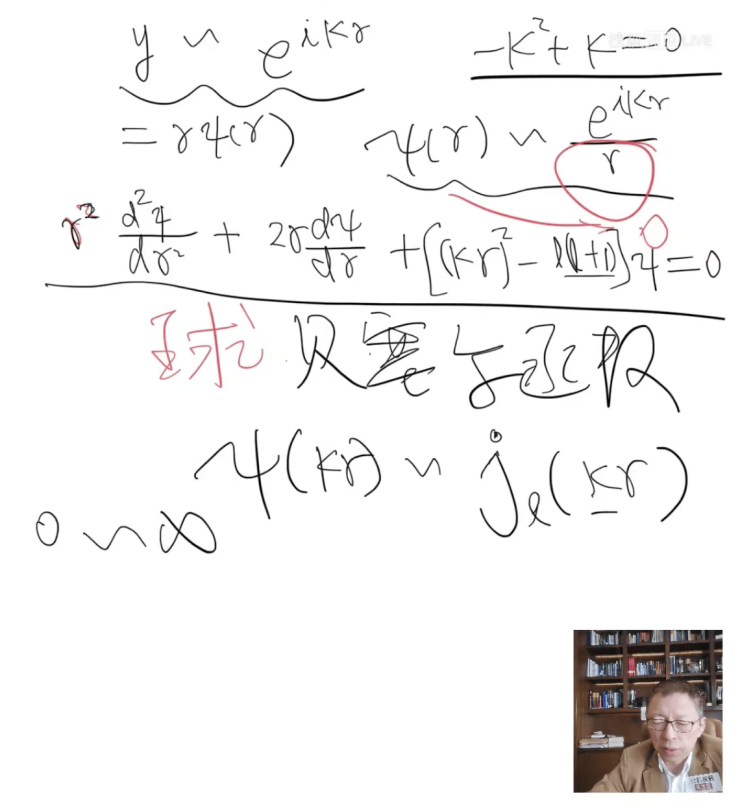 y ~ e^{ikr} -k²+k=0
= rψ(r) ψ(r) ~ e^{ikr}/r
r² d²ψ/dr² + 2r dψ/dr + [(kr)² - l(l+1)]ψ = 0
0
球
ψ(kr) ~ j_l(kr)
0 ~ ∞